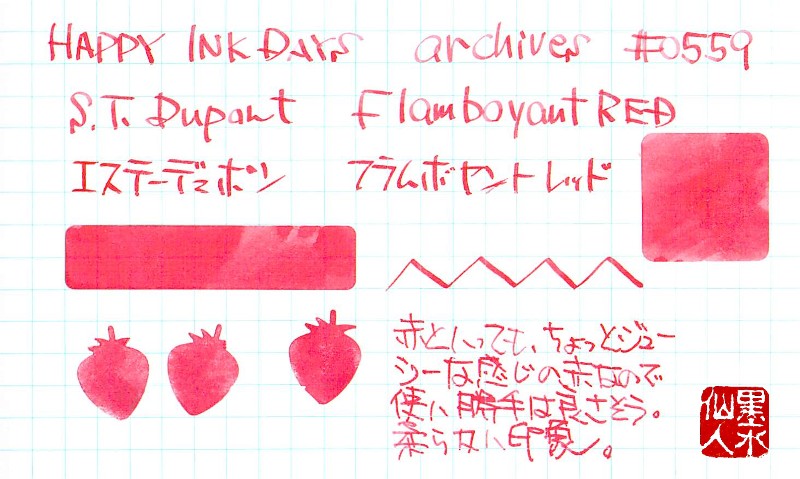 HAPPY INK DAYS archives #0559
S.T. Dupont Flamboyant RED
エステーデュポン フラムボヤント レッド
赤といっても、ちょっとジュー
シーな感じの赤なので
使い勝手は良さそう。
柔らかい印象。
墨水
仙人